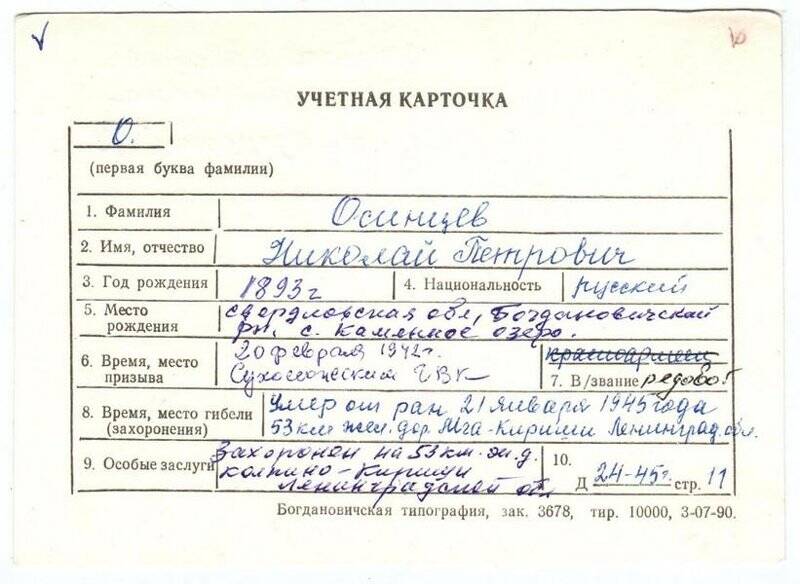 УЧЕТНАЯ КАРТОЧКА
О.
(первая буква фамилии)
1. Фамилия Осинцев
2. Имя, отчество Николай Петрович
3. Год рождения 1893г 4. Национальность русский
5. Место рождения свердловская обл, Богдановичский
рн, с. Каменное озеро.
6. Время, место призыва 20 февраля 1942г.
Сухоложским ГВК
красноармеец
7. В/звание рядовой
8. Время, место гибели (захоронения) Умер от ран 21 января 1945 года
53 км жел. дор Мга-Кириши Ленинград. обл.
9. Особые заслуги Захоронен на 53 км. ж.д.
колпино-Кириши
Ленинградской обл
10.
Д 24-45г. стр. 11
Богдановичская типография, зак. 3678, тир. 10000, 3-07-90.